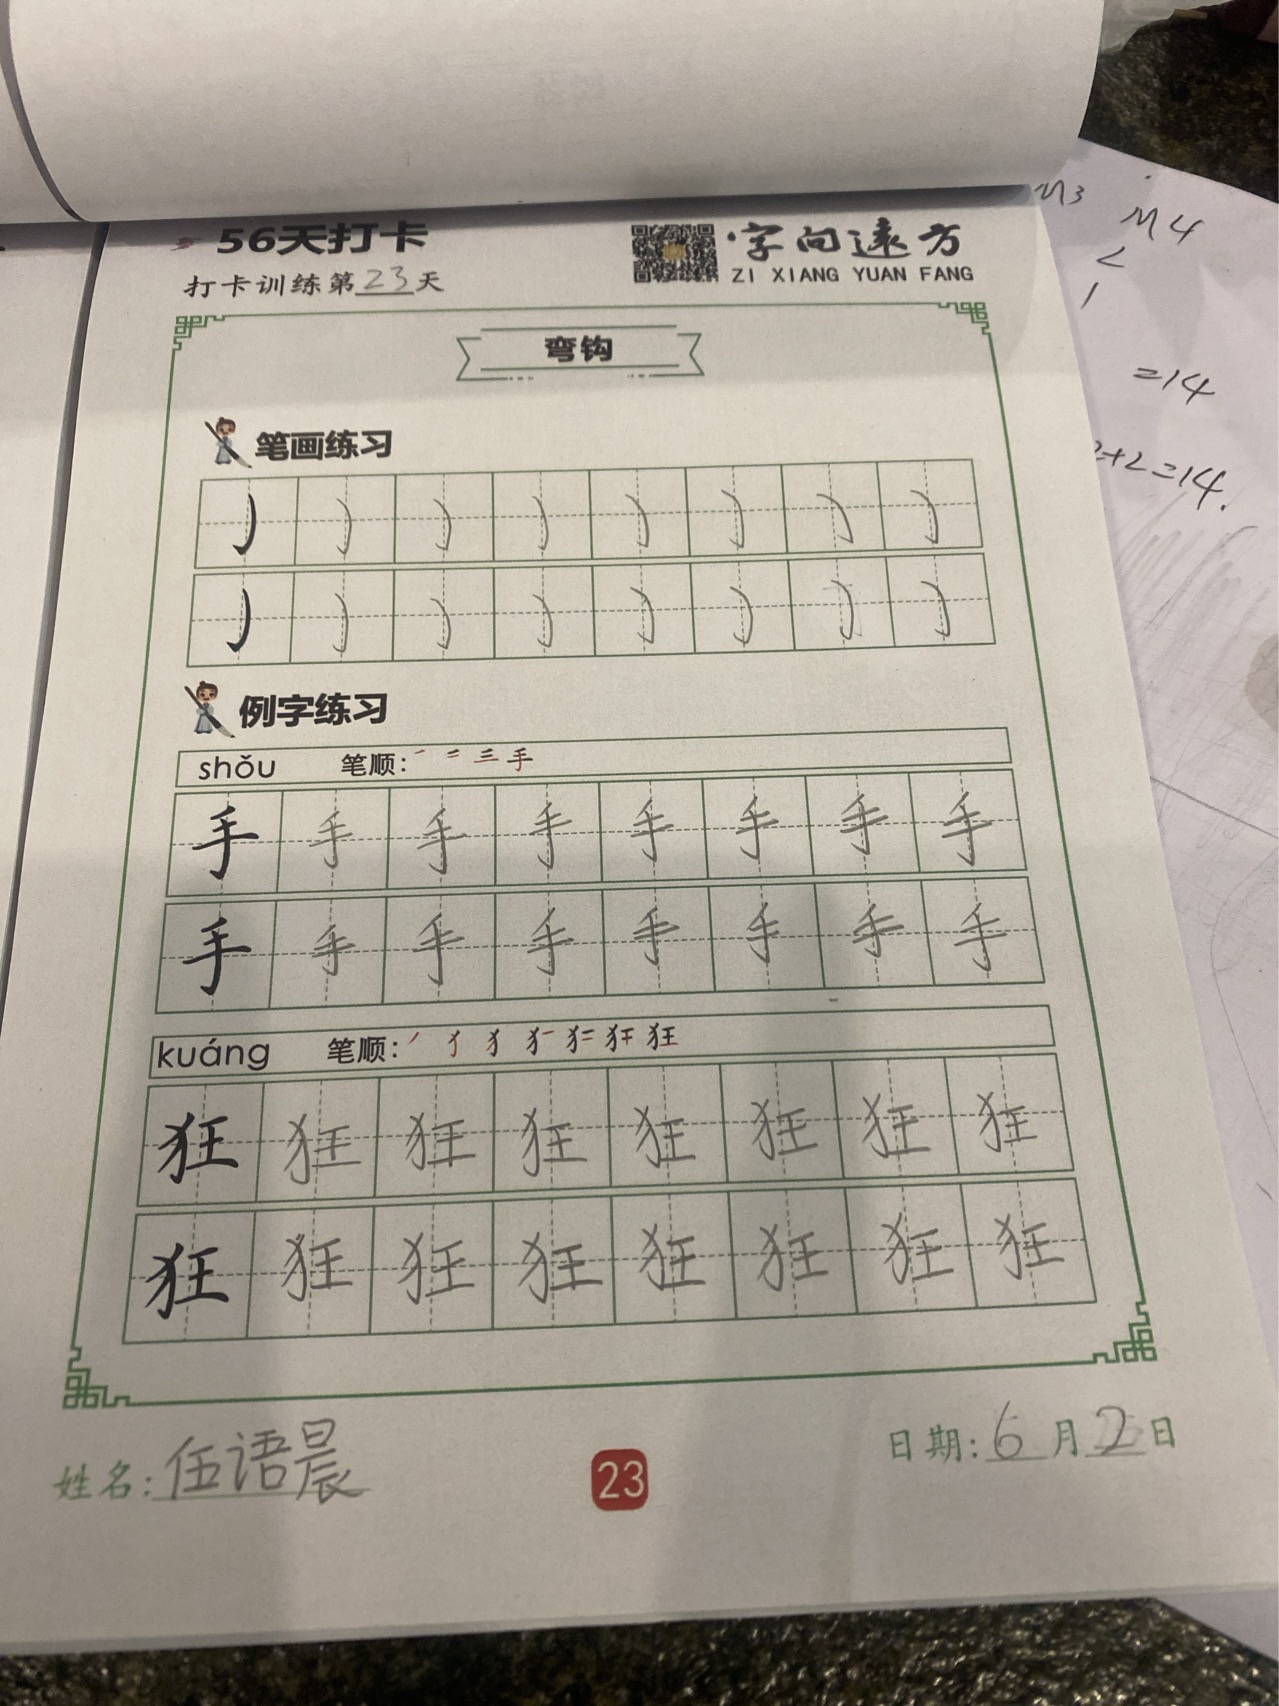 56天打卡
字向远方
打卡训练第23天
ZI XIANG YUAN FANG
弯钩
笔画练习
例字练习
shǒu 笔顺: 一 二 三 手
手 手 手 手 手 手 手 手
手 手 手 手 手 手 手 手
kuáng 笔顺: 狂
狂 狂 狂 狂 狂 狂 狂 狂
狂 狂 狂 狂 狂 狂 狂 狂
姓名: 伍语晨
23
日期: 6月2日
M3 M4
<
1
=14
2+2=14.